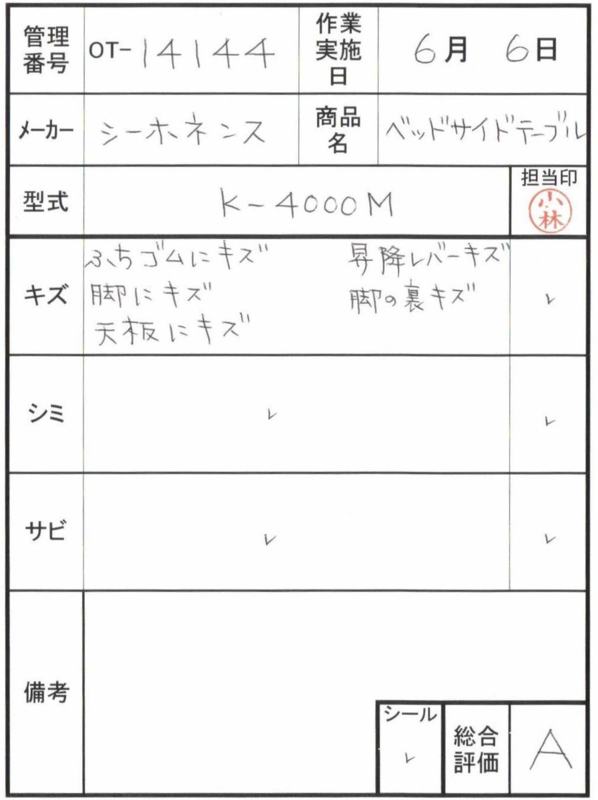 管理番号 OT-14144 作業実施日 6月 6日
メーカー シーホネンス 商品名 ベッドサイドテーブル
型式 K-4000M 担当印 小林
キズ ふちゴムにキズ 昇降レバーキズ レ
脚にキズ 脚の裏キズ
天板にキズ
シミ レ レ
サビ レ レ
備考
シール レ 総合評価 A